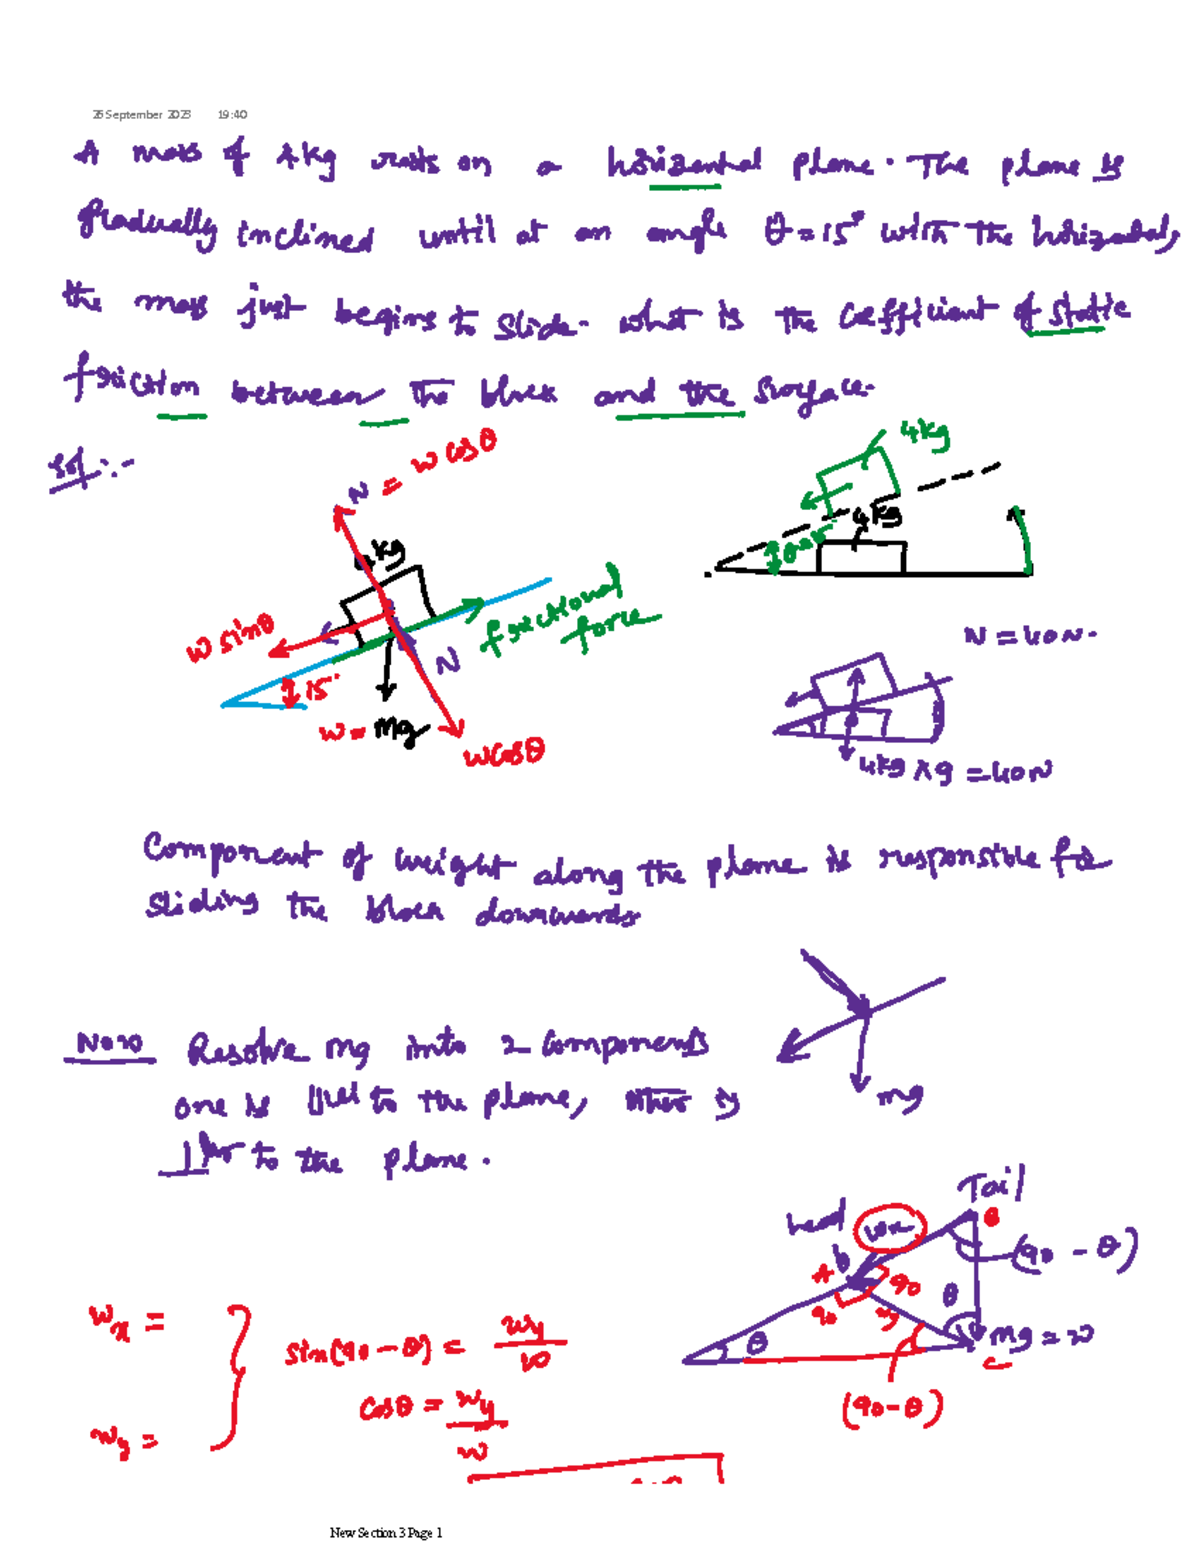 26 September 2023 19:40
A mass of 4kg rests on a horizontal plane. The plane is
gradually inclined until at an angle θ = 15° with the horizontal,
the mass just begins to slide. what is the coefficient of static
friction between the block and the surface.
Sol:-
N = w cosθ
4kg
4kg
kg
w sinθ
frictional
force
N = 40N.
N
15°
w = mg
wcosθ
4kg × g = 40N
Component of weight along the plane is responsible for
sliding the block downwards
Now Resolve mg into 2 components
one is llel to the plane, other is
⊥lar to the plane.
mg
Tail
head
wx
B
(90 - θ)
A
90
θ
90
wy
θ
mg = w
C
(90-θ)
wx =
sin(90-θ) = wy/w
cosθ = wy/w
wy =
New Section 3 Page 1